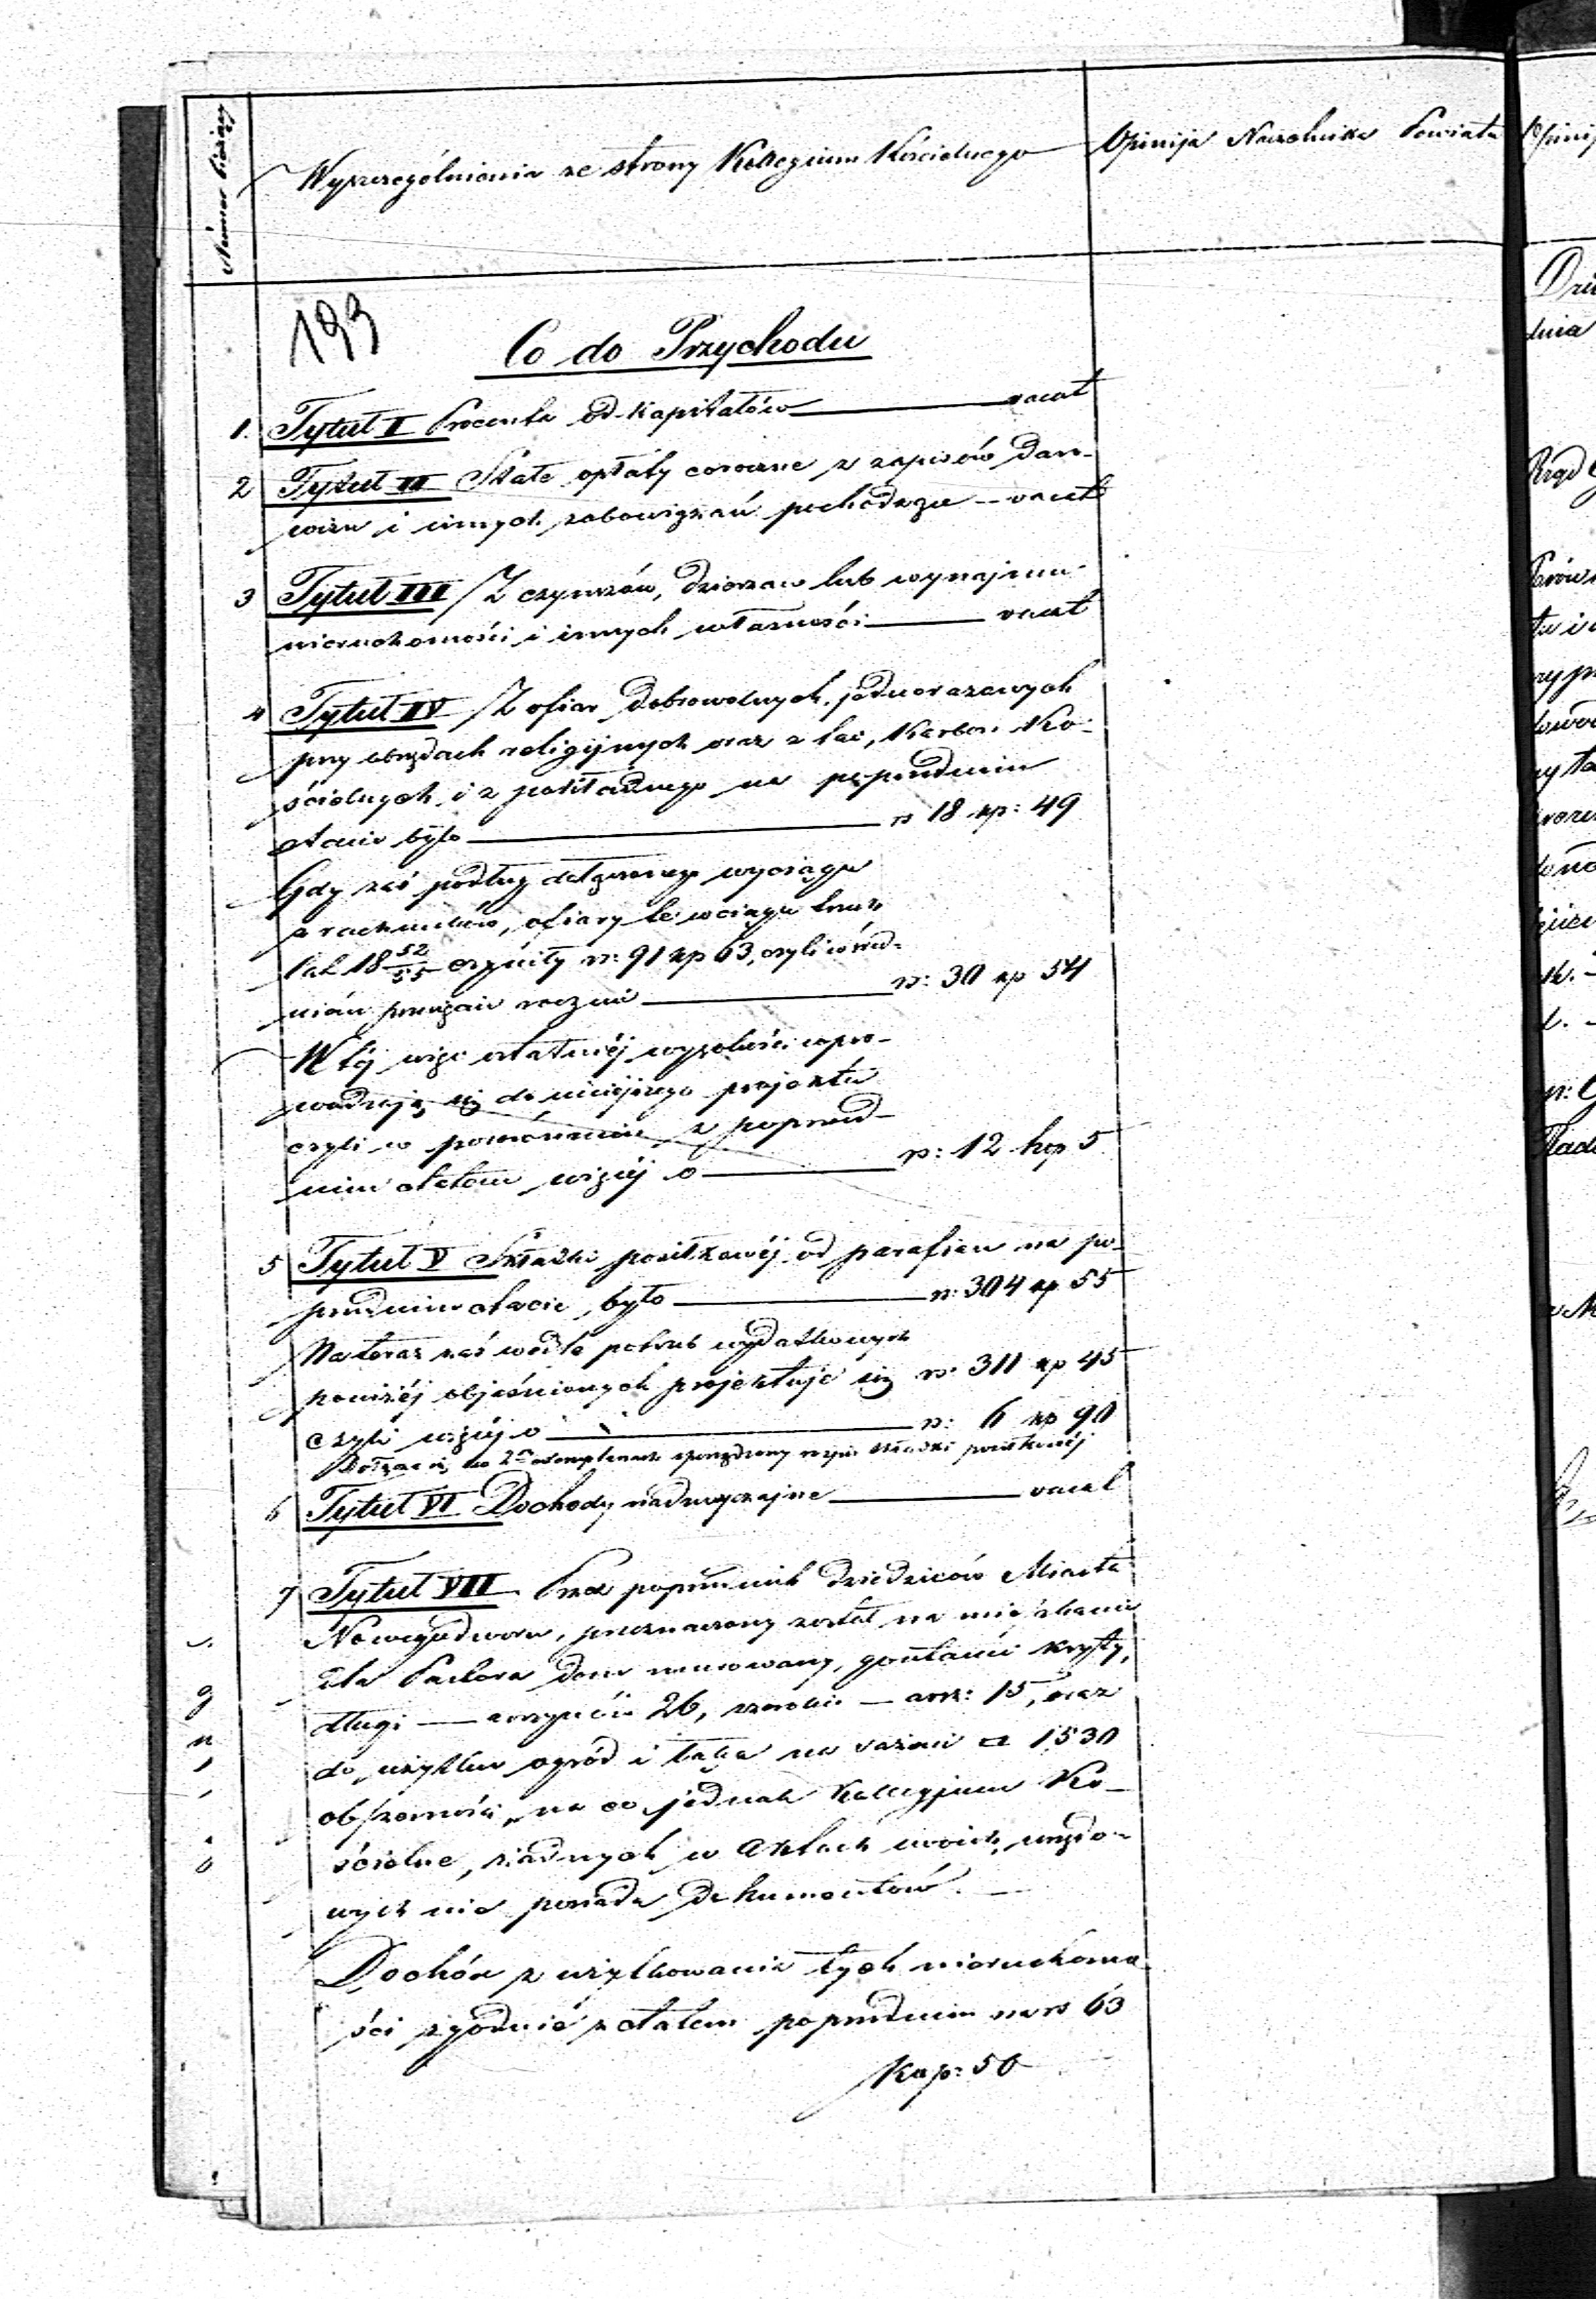 Numer Bieżący
Wyszczególnienia ze strony Kollegium Kościelnego
Opinija Naczelnika Powiatu
193
Co do Przychodu
1. Tytuł I Procenta od Kapitałów — vacat
2 Tytuł II Stałe opłaty coroczne z zapisów daro-
wizn i innych zobowiązań pochodzące — vacat
3 Tytuł III Z czynszów, dzierzaw lub wynajmu
nieruchomości i innych własności — vacat
4 Tytuł IV Z ofiar dobrowolnych jednorazowych
przy obrzędach religijnych oraz z tac, Karbon Ko-
ścielnych i z pokładnego na poprzednim
etacie było — rs 18 kp: 49
Gdy zaś podług dołączonego wyciągu
z rachunków, ofiary te w ciągu trzech
lat 18 52/55 czyniły rs: 91 kp 63, czyli w śred-
nim przecięciu rocznie — rs: 30 kp 54
W téj więc ostatniéj wysokości wpro-
wadzają się do niniejszego projektu
czyli w porównaniu z poprzed-
nim etatem więcéj o — rs: 12 kop 5
5 Tytuł V Składki posiłkowéj od parafian na po-
przednim etacie, było — rs: 304 kp 55
Na teraz zaś wedle potrzeb wydatkowych
poniżéj objaśnionych projektuje się rs: 311 kp 45
czyli więcéj o — rs: 6 kp 90
Dołącza się w 2ch exemplarzach sporządzony rozpis składki posiłkowéj
6 Tytuł VI Dochody nadzwyczajne — vacat
7 Tytuł VII Przez poprzednich dziedziców Miasta
Nowegodworu, przeznaczony został na mieszkanie
dla Pastora dom murowany, gontami kryty,
długi — arszynów 26, szeroki — arsz: 15, oraz
do użytku ogród i łąka na sażeni □ 1530
obszerności, na co jednak Kollegijum Ko-
ścielne, żadnych w Aktach swoich urzędo-
wych nie posiada Dokumentów.
Dochód z użytkowania tych nieruchomo-
ści zgodnie z etatem poprzednim na rs 63
Kop: 50